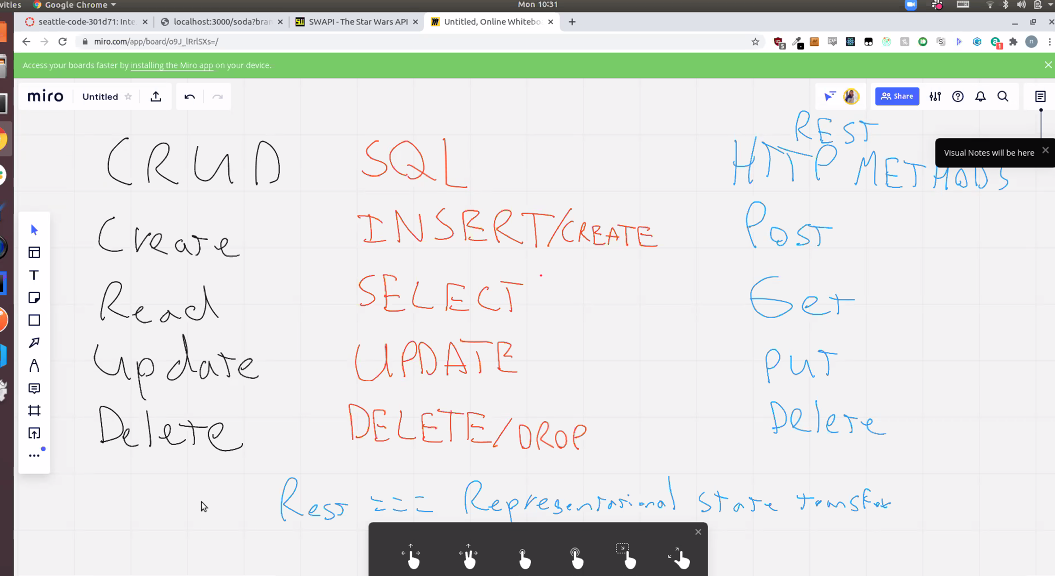 vities Google Chrome Mon 10:31
seattle-code-301d71: Inte localhost:3000/soda?bran SWAPI - The Star Wars API Untitled, Online Whitebo
miro.com/app/board/o9J_lRrlSXs=/
Access your boards faster by installing the Miro app on your device.
miro Untitled Share
REST
CRUD SQL HTTP METHODS
Visual Notes will be here
Create INSERT/CREATE Post
Read SELECT Get
Update UPDATE PUT
Delete DELETE/DROP Delete
Rest === Representational state transfer